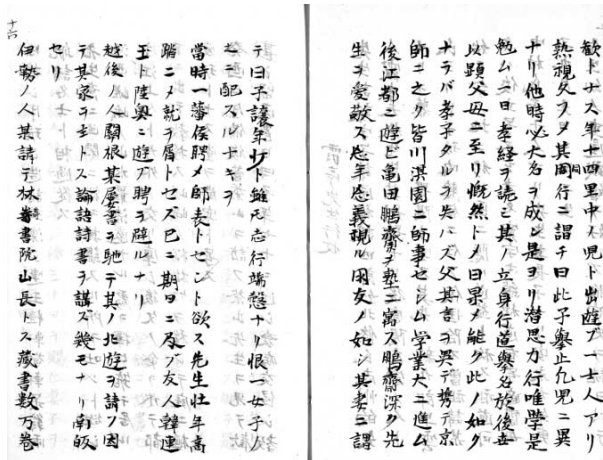 歓トナス年十四里中ス児ト出遊ブ一士人アリ
熟視久フメ其同行ニ謂テ曰此子擧止凡児ニ異
ナリ他時必大名ヲ成ン是ヨリ潜思力行唯學是
勉ム一日孝経ヲ読ミ其ノ立身行道擧名於後世
以顕父母ニ至リ慨然トメ曰果メ能ク此ノ如ク
ナラバ孝子タルヲ失ハズ父其言ヲ異テ携テ京
師ニ之ク皆川淇園ニ師事セシム学業大ニ進ム
後江都ニ遊ビ亀田鵬齋ヲ塾ニ寓ス鵬齋深ク先
生ヲ愛敬ス忘年忘義視ル朋友ノ如シ其妻ニ謂
テ曰子譲年少ト雖モ志行端愨ナリ恨一女子ノ
ニ配スルナキヲ
當時一藩侯聘メ師表トセント欲ス先生壮年高
踏ニメ就ヲ屑トセズ已ニ期日ニ及ブ友人韓連
玉ト陸奥ニ遊ブ聘ヲ避ルナリ
越後ノ人關根某屡書ヲ馳テ其ノ北遊ヲ請ノ因
テ其家ヲ主トス論語詩書ヲ講ズ幾モナリ南皈
セリ
伊勢ノ人某請テ林崎書院山長トス藏書数万巻
十六